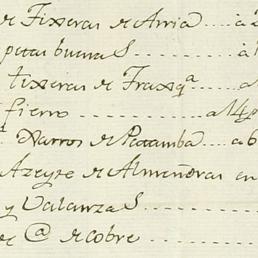 de Tixeras de Arria ..... à 2
petas buenas ..... à 1
tixeras de Franxª ..... a
fierro ..... a 14 p
Xarros de Patamba ..... a 6
Azeyte de Almendras en
y Valanzas .....
de @ de cobre .....